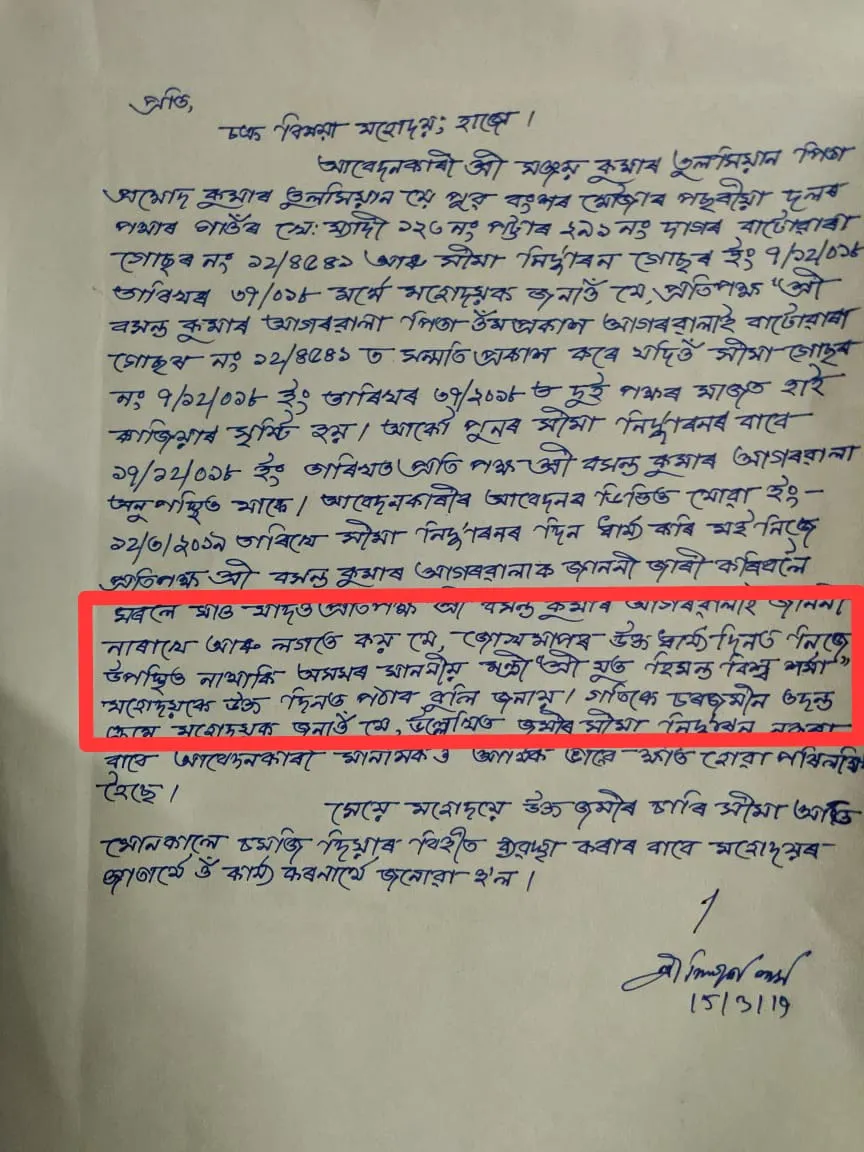 প্ৰতি,
চক্ৰ বিষয়া মহোদয়; হাজো ।
আবেদনকাৰী শ্ৰী সঞ্জয় কুমাৰ তুলসিয়ান পিতা
প্ৰমোদ কুমাৰ তুলসিয়ান যে পূব বংশৰ মৌজাৰ পছৰীয়া দলৰ
পথাৰ গাওঁৰ খে: ম্যাদী ১২৩ নং পট্টাৰ ২৯১ নং দাগৰ বাটোৱাৰা
গোছৰ নং ১২/৪৫৪১ আৰু সীমা নিৰ্দ্ধাৰন গোছৰ ইং ৭/১২/০১৮
তাৰিখৰ ৩৭/০১৮ মৰ্মে মহোদয়ক জনাওঁ যে, প্ৰতিপক্ষ "শ্ৰী
বসন্ত কুমাৰ আগৰৱালা পিতা ওঁমপ্ৰকাশ আগৰৱালাই বাটোৱাৰা
গোছৰ নং ১২/৪৫৪১ ত সন্মতি প্ৰকাশ কৰে যদিওঁ সীমা গোছৰ
নং ৭/১২/০১৮ ইং তাৰিখৰ ৩৭/২০১৮ ত দুই পক্ষৰ মাজত হাই
কাজিয়াৰ সৃষ্টি হয় । আকৌ পুনৰ সীমা নিৰ্দ্ধাৰনৰ বাবে
১৭/১২/০১৮ ইং তাৰিখত প্ৰতি পক্ষ শ্ৰী বসন্ত কুমাৰ আগৰৱালা
অনুপস্থিত থাকে । আবেদনকাৰীৰ আবেদনৰ ভিত্তিত যোৱা ইং-
১২/৩/২০১৯ তাৰিখে সীমা নিৰ্দ্ধাৰনৰ দিন ধাৰ্য্য কৰি মই নিজে
প্ৰতিপক্ষ শ্ৰী বসন্ত কুমাৰ আগৰৱালাক জাননী জাৰী কৰিবলৈ
ঘৰলৈ যাওঁ যদিও প্ৰতিপক্ষ শ্ৰী বসন্ত কুমাৰ আগৰৱালাই জাননী
নাৰাখে আৰু লগতে কয় যে, জোখমাপৰ উক্ত ধাৰ্য্য দিনত নিজে
উপস্থিত নাথাকি অসমৰ মাননীয় মন্ত্ৰী "শ্ৰী যুত হিমন্ত বিশ্ব শৰ্মা"
মহোদয়কে উক্ত দিনত পঠাব বুলি জনায় । গতিকে চৰজমীন তদন্ত
ক্ৰমে মহোদয়ক জনাওঁ যে, উল্লেখিত জমীৰ সীমা নিৰ্দ্ধাৰন নকৰা
বাবে আবেদনকাৰী মানসিক ও আৰ্থিক ভাবে ক্ষতি হোৱা পৰিলক্ষি
হৈছে ।
সেয়ে মহোদয়ে উক্ত জমীৰ চাৰি সীমা অতি
সোনকালে চমজি দিয়াৰ বিহীত ব্যৱস্থা কৰাৰ বাবে মহোদয়ৰ
জ্ঞাতাৰ্থে ওঁ কাৰ্য্য কৰনাৰ্থে জনোৱা হ'ল ।
15/3/19